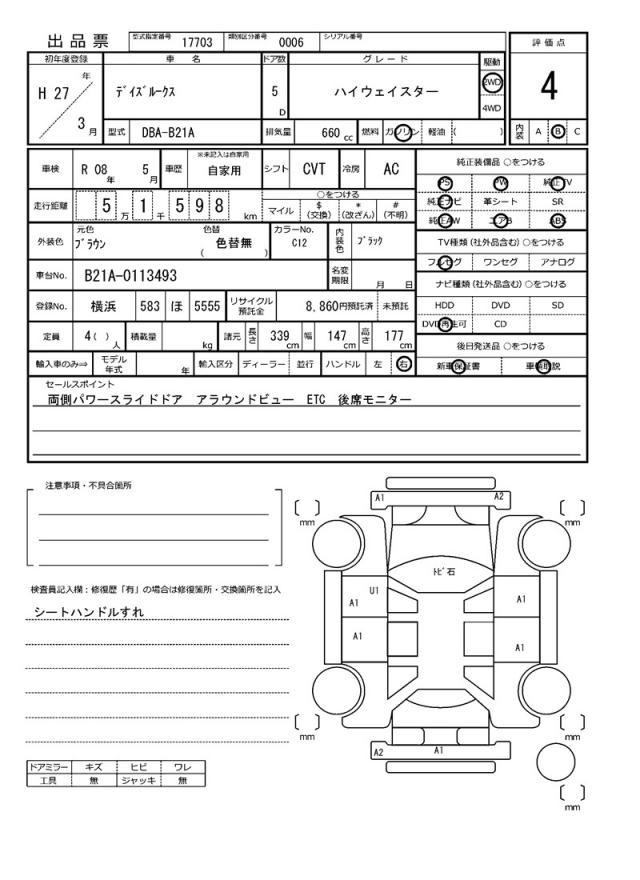 出品票 型式指定番号 17703 類別区分番号 0006 シリアル番号
評価点
4
内装 A B C
初年度登録 車名 ドア数 グレード 駆動
H 27 年 3 月 デイズルークス 5 D ハイウェイスター 2WD 4WD
型式 DBA-B21A 排気量 660 cc 燃料 ガソリン 軽油 ( )
車検 R 08 年 5 月 車歴 ※未記入は自家用 自家用 シフト CVT 冷房 AC
走行距離 5 万 1 千 5 9 8 km ○をつける
マイル $ (交換) * (改ざん) # (不明)
外装色 元色 ブラウン 色替 ( 色替無 ) カラーNo. C12 内装色 ブラック
車台No. B21A-0113493 名変期限 月 日
登録No. 横浜 583 ほ 5555 リサイクル預託金 8,860円預託済 未預託
定員 4( ) 人 積載量 kg 諸元 長さ 339 cm 幅 147 cm 高さ 177 cm
輸入車のみ⇒ モデル年式 年 輸入区分 ディーラー 並行 ハンドル 左 右
純正装備品 ○をつける
PS PW 純正TV
純正ナビ 革シート SR
純正AW エアB ABS
TV種類 (社外品含む) ○をつける
フルセグ ワンセグ アナログ
ナビ種類 (社外品含む) ○をつける
HDD DVD SD
DVD再生可 CD
後日発送品 ○をつける
新車保証書 車輌取説
セールスポイント
両側パワースライドドア アラウンドビュー ETC 後席モニター
注意事項・不具合箇所
検査員記入欄：修復歴「有」の場合は修復箇所・交換箇所を記入
シートハンドルすれ
ドアミラー キズ ヒビ ワレ
工具 無 ジャッキ 無
A1 A2
mm mm
トビ石
U1
A1 A1
A1 A1
mm mm
A2 A1
mm